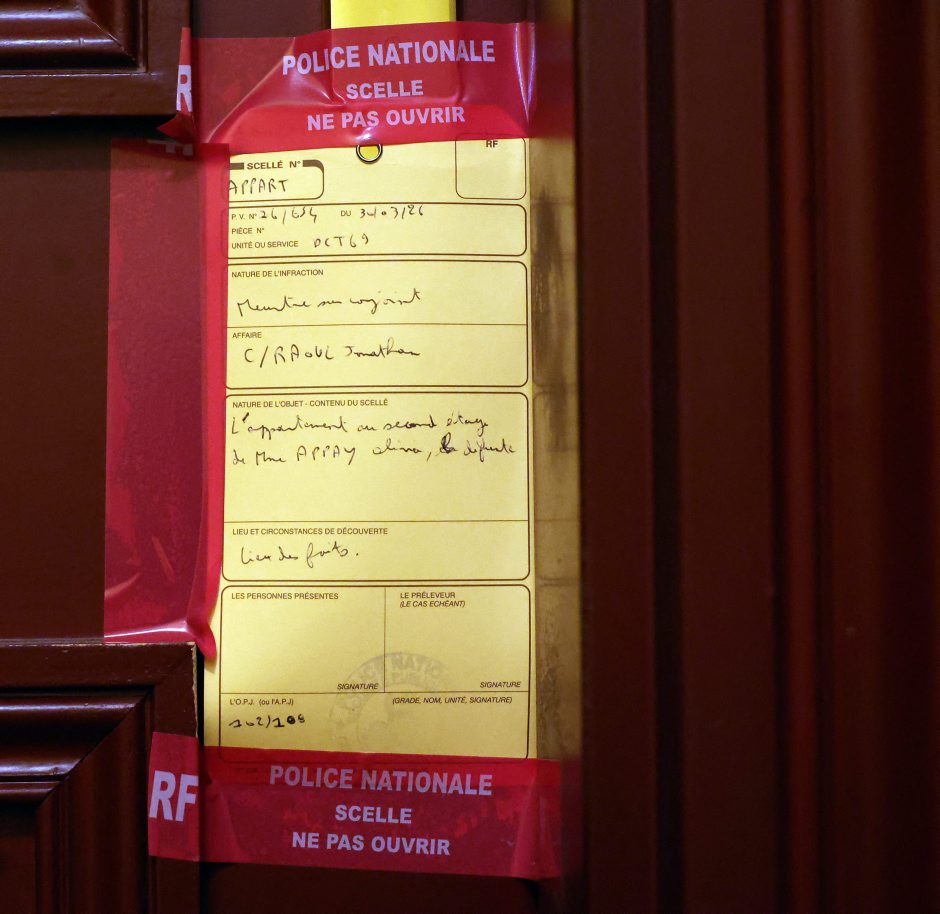 POLICE NATIONALE
R
SCELLE
NE PAS OUVRIR
RF
SCELLÉ N°
APPART
P.V. N° 26/654 DU 30/03/26
PIÈCE N°
UNITÉ OU SERVICE DCT69
NATURE DE L'INFRACTION
Meurtre sur conjoint
AFFAIRE
C/RAOUL Jonathan
NATURE DE L'OBJET - CONTENU DU SCELLÉ
L'appartement au second étage
de Mme APPAY, la défunte
LIEU ET CIRCONSTANCES DE DÉCOUVERTE
Lieu des faits.
LES PERSONNES PRÉSENTES
LE PRÉLEVEUR
(LE CAS ECHÉANT)
SIGNATURE
SIGNATURE
L'O.P.J. (ou l'A.P.J)
(GRADE, NOM, UNITÉ, SIGNATURE)
POLICE NATIONALE
RF
SCELLE
NE PAS OUVRIR